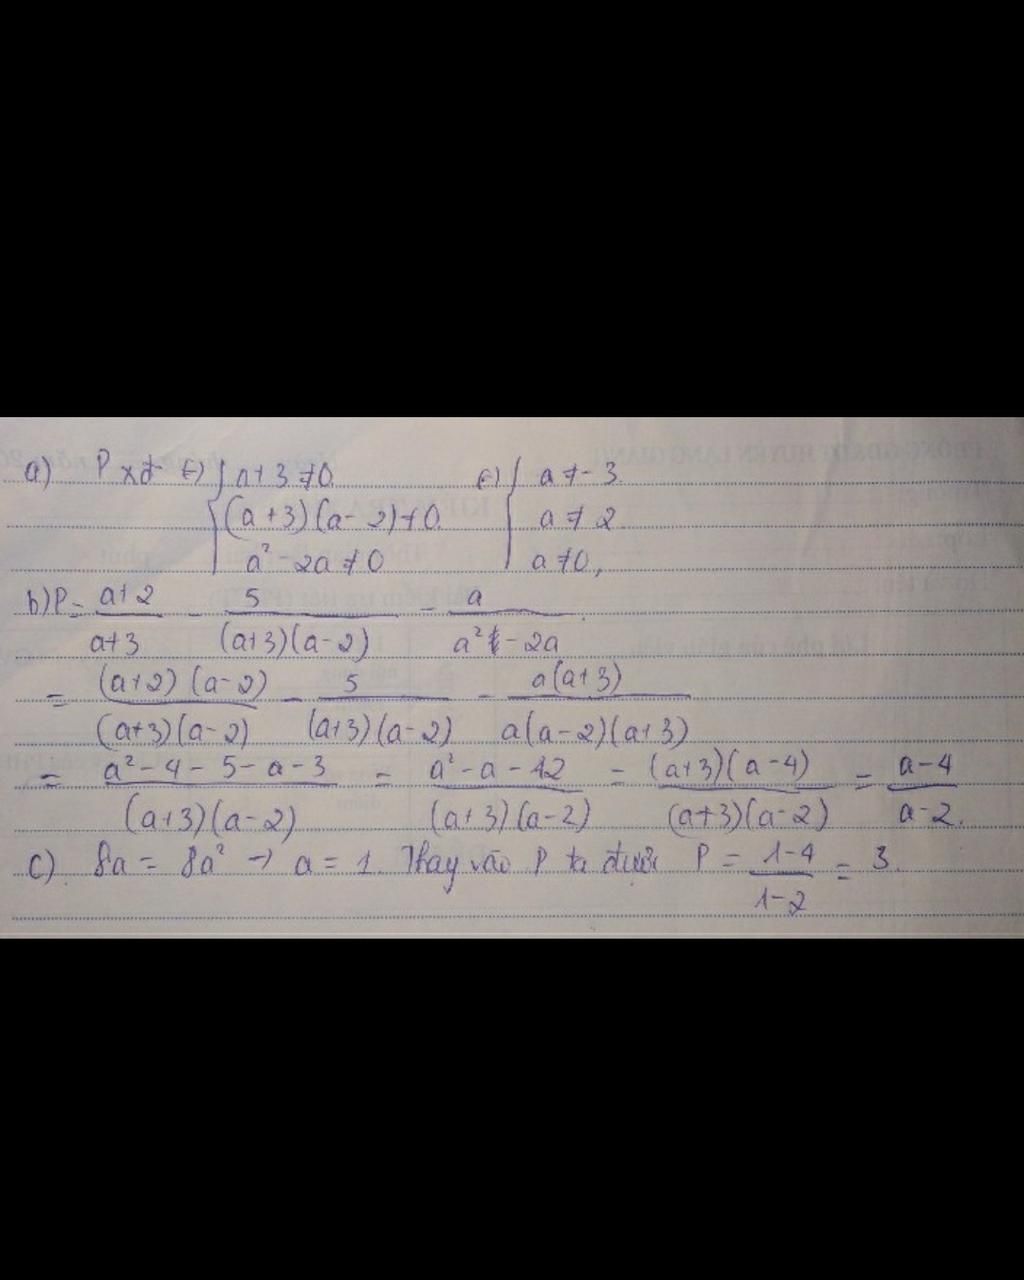 a) P xđ ⇔ { a+3 ≠ 0 ⇔ { a ≠ -3
(a+3)(a-2) ≠ 0 a ≠ 2
a² - 2a ≠ 0 a ≠ 0,
b) P = (a+2)/(a+3) - 5/((a+3)(a-2)) - a/(a² - 2a)
= ((a+2)(a-2))/((a+3)(a-2)) - 5/((a+3)(a-2)) - (a(a+3))/(a(a-2)(a+3))
= (a² - 4 - 5 - a - 3)/((a+3)(a-2)) = (a² - a - 12)/((a+3)(a-2)) = ((a+3)(a-4))/((a+3)(a-2)) = (a-4)/(a-2).
c) 8a = 8a² → a = 1. Thay vào P ta được P = (1-4)/(1-2) = 3.